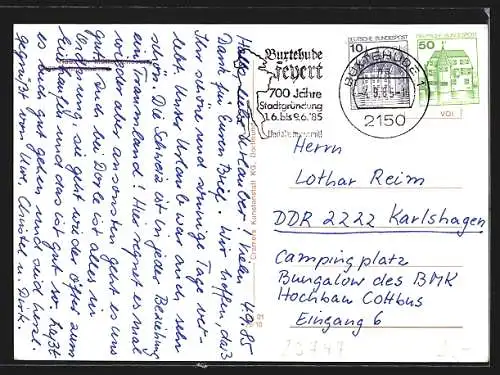 4.9.85
Hallo, liebe Urlauber! Vielen
Dank für euren Brief. Wir hoffen, daß
Ihr schöne und sonnige Tage ver-
lebt. Unser Urlaub war auch sehr
schön. Die Schweiz ist in jeder Beziehung
ein Traumland! Hier regnet es mal
wieder aber ansonsten geht es uns
gut. Auch bei Dörle ist alles in
Ordnung, sie geht wieder öfter zum
Einkaufen und das ist gut so. Laßt
es euch gut gehen und seid herzl.
gegrüßt von Uwe, Christel
u. Dirk.
Cramers Kunstanstalt KG, Dortmund
Buxtehude
feyert
700 Jahre
Stadtgründung
1.6. bis 9.6.'85
10
DEUTSCHE BUNDESPOST
50
BUXTEHUDE 1
2150
Herrn
Lothar Reim
DDR 2222 Karlshagen
Campingplatz
Bungalow des BMK
Hochbau Cottbus
Eingang 6